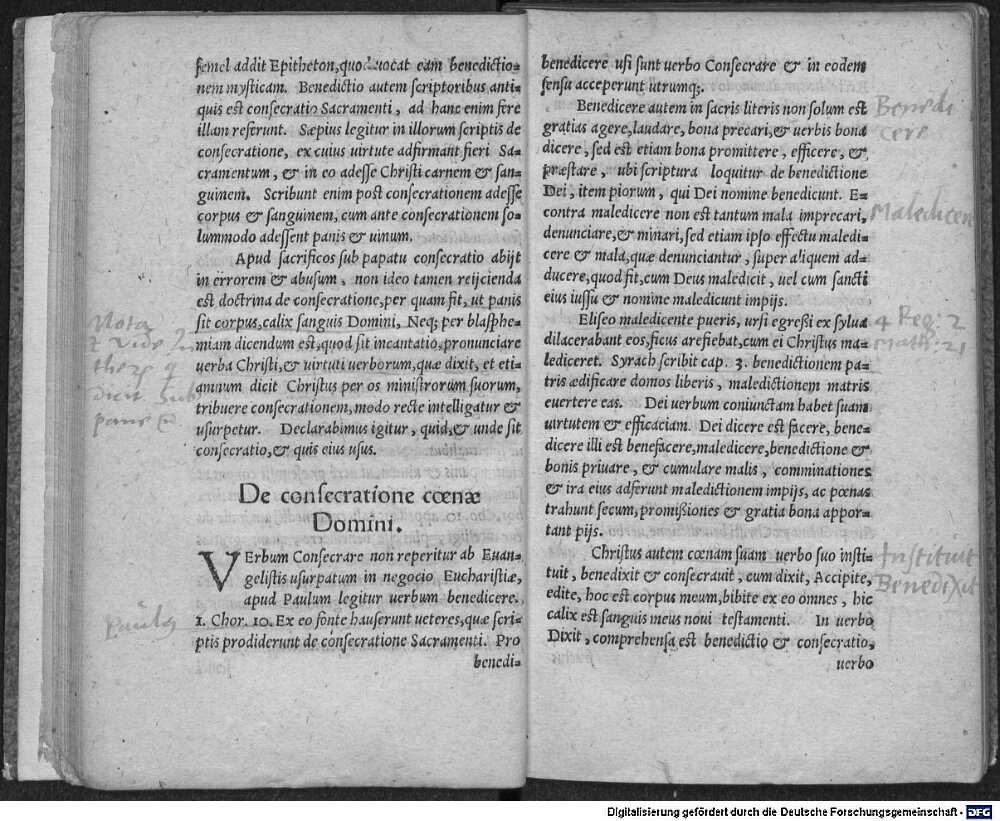 semel addit Epitheton, quod uocat eam benedictio=
nem mysticam. Benedictio autem scriptoribus anti=
quis est consecratio Sacramenti, ad hanc enim fere
illam referunt. Sæpius legitur in illorum scriptis de
consecratione, ex cuius virtute adfirmant fieri Sa=
cramentum, & in eo adesse Christi carnem & san=
guinem. Scribunt enim post consecrationem adesse
corpus & sanguinem, cum ante consecrationem so=
lummodo adessent panis & uinum.
Apud sacrificos sub papatu consecratio abijt
in errorem & abusum, non ideo tamen reijcienda
est doctrina de consecratione, per quam fit, ut panis
sit corpus, calix sanguis Domini, Neq; per blasphe=
miam dicendum est, quod sit incantatio, pronunciare
uerba Christi, & uirtuti uerborum, quæ dixit, et eti=
amnum dicit Christus per os ministrorum suorum,
tribuere consecrationem, modo recte intelligatur &
usurpetur. Declarabimus igitur, quid, & unde sit
consecratio, & quis eius usus.
Nota
Vide
there q
dicit sub
pane
De consecratione cœnæ
Domini.
VErbum Consecrare non reperitur ab Euan=
gelistis usurpatum in negocio Eucharistiæ,
apud Paulum legitur uerbum benedicere.
1. Chor. 10. Ex eo fonte hauserunt ueteres, quæ scri=
ptis prodiderunt de consecratione Sacramenti. Pro
benedi=
Paulus
benedicere usi sunt uerbo Consecrare & in eodem
sensu acceperunt utrumq;.
Benedicere autem in sacris literis non solum est
gratias agere, laudare, bona precari, & uerbis bona
dicere, sed est etiam bona promittere, efficere, &
præstare, ubi scriptura loquitur de benedictione
Dei, item piorum, qui Dei nomine benedicunt. E=
contra maledicere non est tantum mala imprecari,
denunciare, & minari, sed etiam ipso effectu maledi=
cere & mala, quæ denunciantur, super aliquem ad=
ducere, quod fit, cum Deus maledicit, uel cum sancti
eius iussu & nomine maledicunt impijs.
Eliseo maledicente pueris, ursi egreßi ex sylua
dilacerabant eos, ficus arefiebat, cum ei Christus ma=
lediceret. Syrach scribit cap. 3. benedictionem pa=
tris ædificare domos liberis, maledictionem matris
euertere eas. Dei uerbum coniunctam habet suam
uirtutem & efficaciam. Dei dicere est facere, bene=
dicere illi est benefacere, maledicere, benedictione &
bonis priuare, & cumulare malis, comminationes
& ira eius adferunt maledictionem impijs, ac pœnas
trahunt secum, promißiones & gratia bona appor=
tant pijs.
Christus autem cœnam suam uerbo suo insti=
tuit, benedixit & consecrauit, cum dixit, Accipite,
edite, hoc est corpus meum, bibite ex eo omnes, hic
calix est sanguis meus noui testamenti. In uerbo
Dixit, comprehensa est benedictio & consecratio,
uerbo
Benedi
cere
Maledicere
4 Reg: 2
Math: 21
Instituit
Benedixit
Digitalisierung gefördert durch die Deutsche Forschungsgemeinschaft - DFG